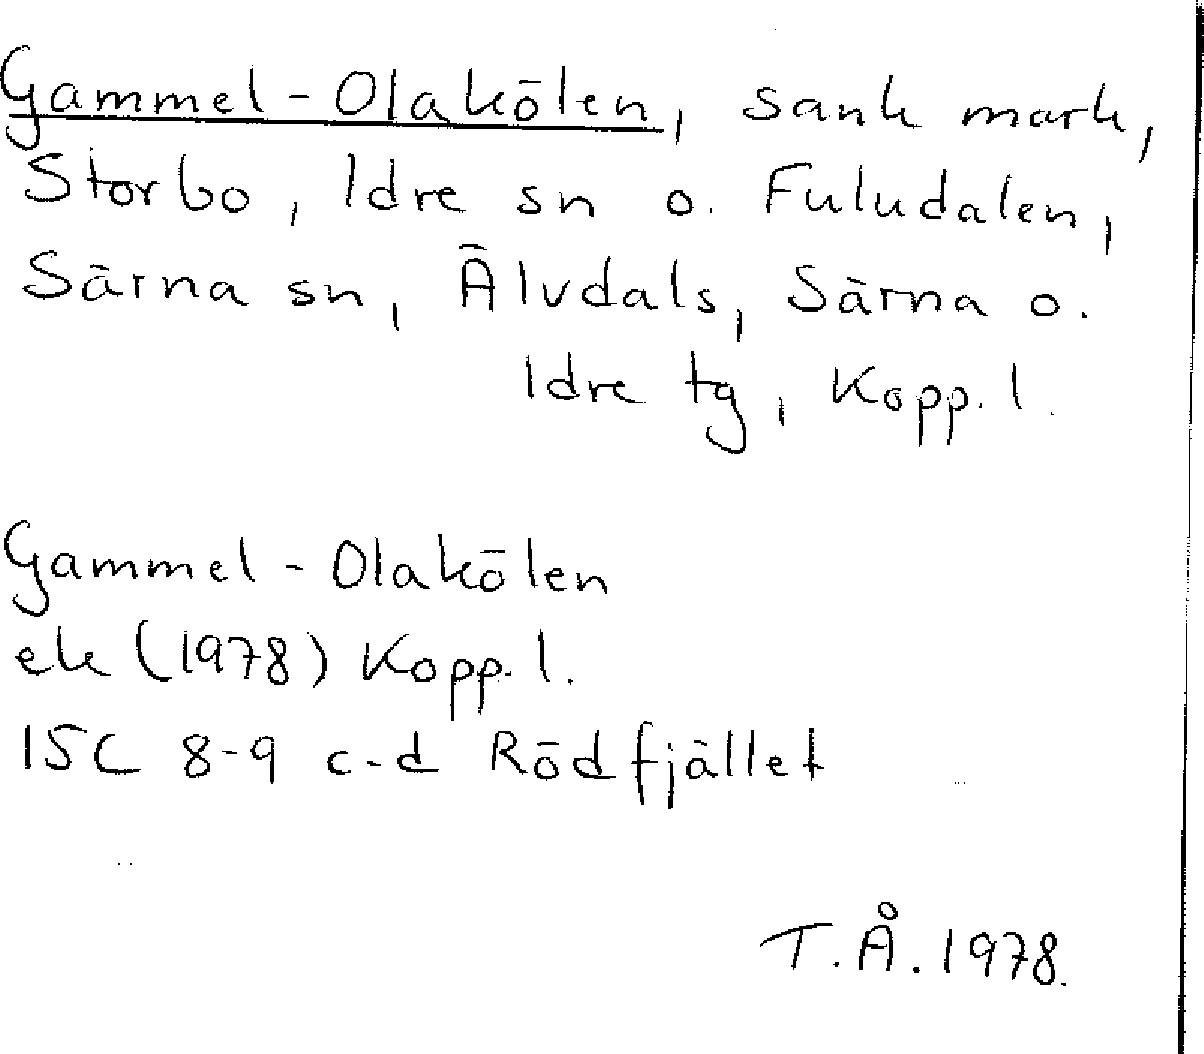 Gammel-Olakölen, sank mark,
Storbo, Idre sn o. Fuludalen,
Särna sn, Älvdals, Särna o.
Idre tg, Kopp. l.
Gammel-Olakölen
ek (1978) Kopp. l.
15C 8-9 c-d Rödfjället
T.Å. 1978.